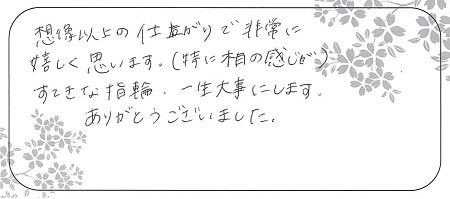 想像以上の仕上がりで非常に
嬉しく思います。(特に相の感じが)
すてきな指輪、一生大事にします。
ありがとうございました。